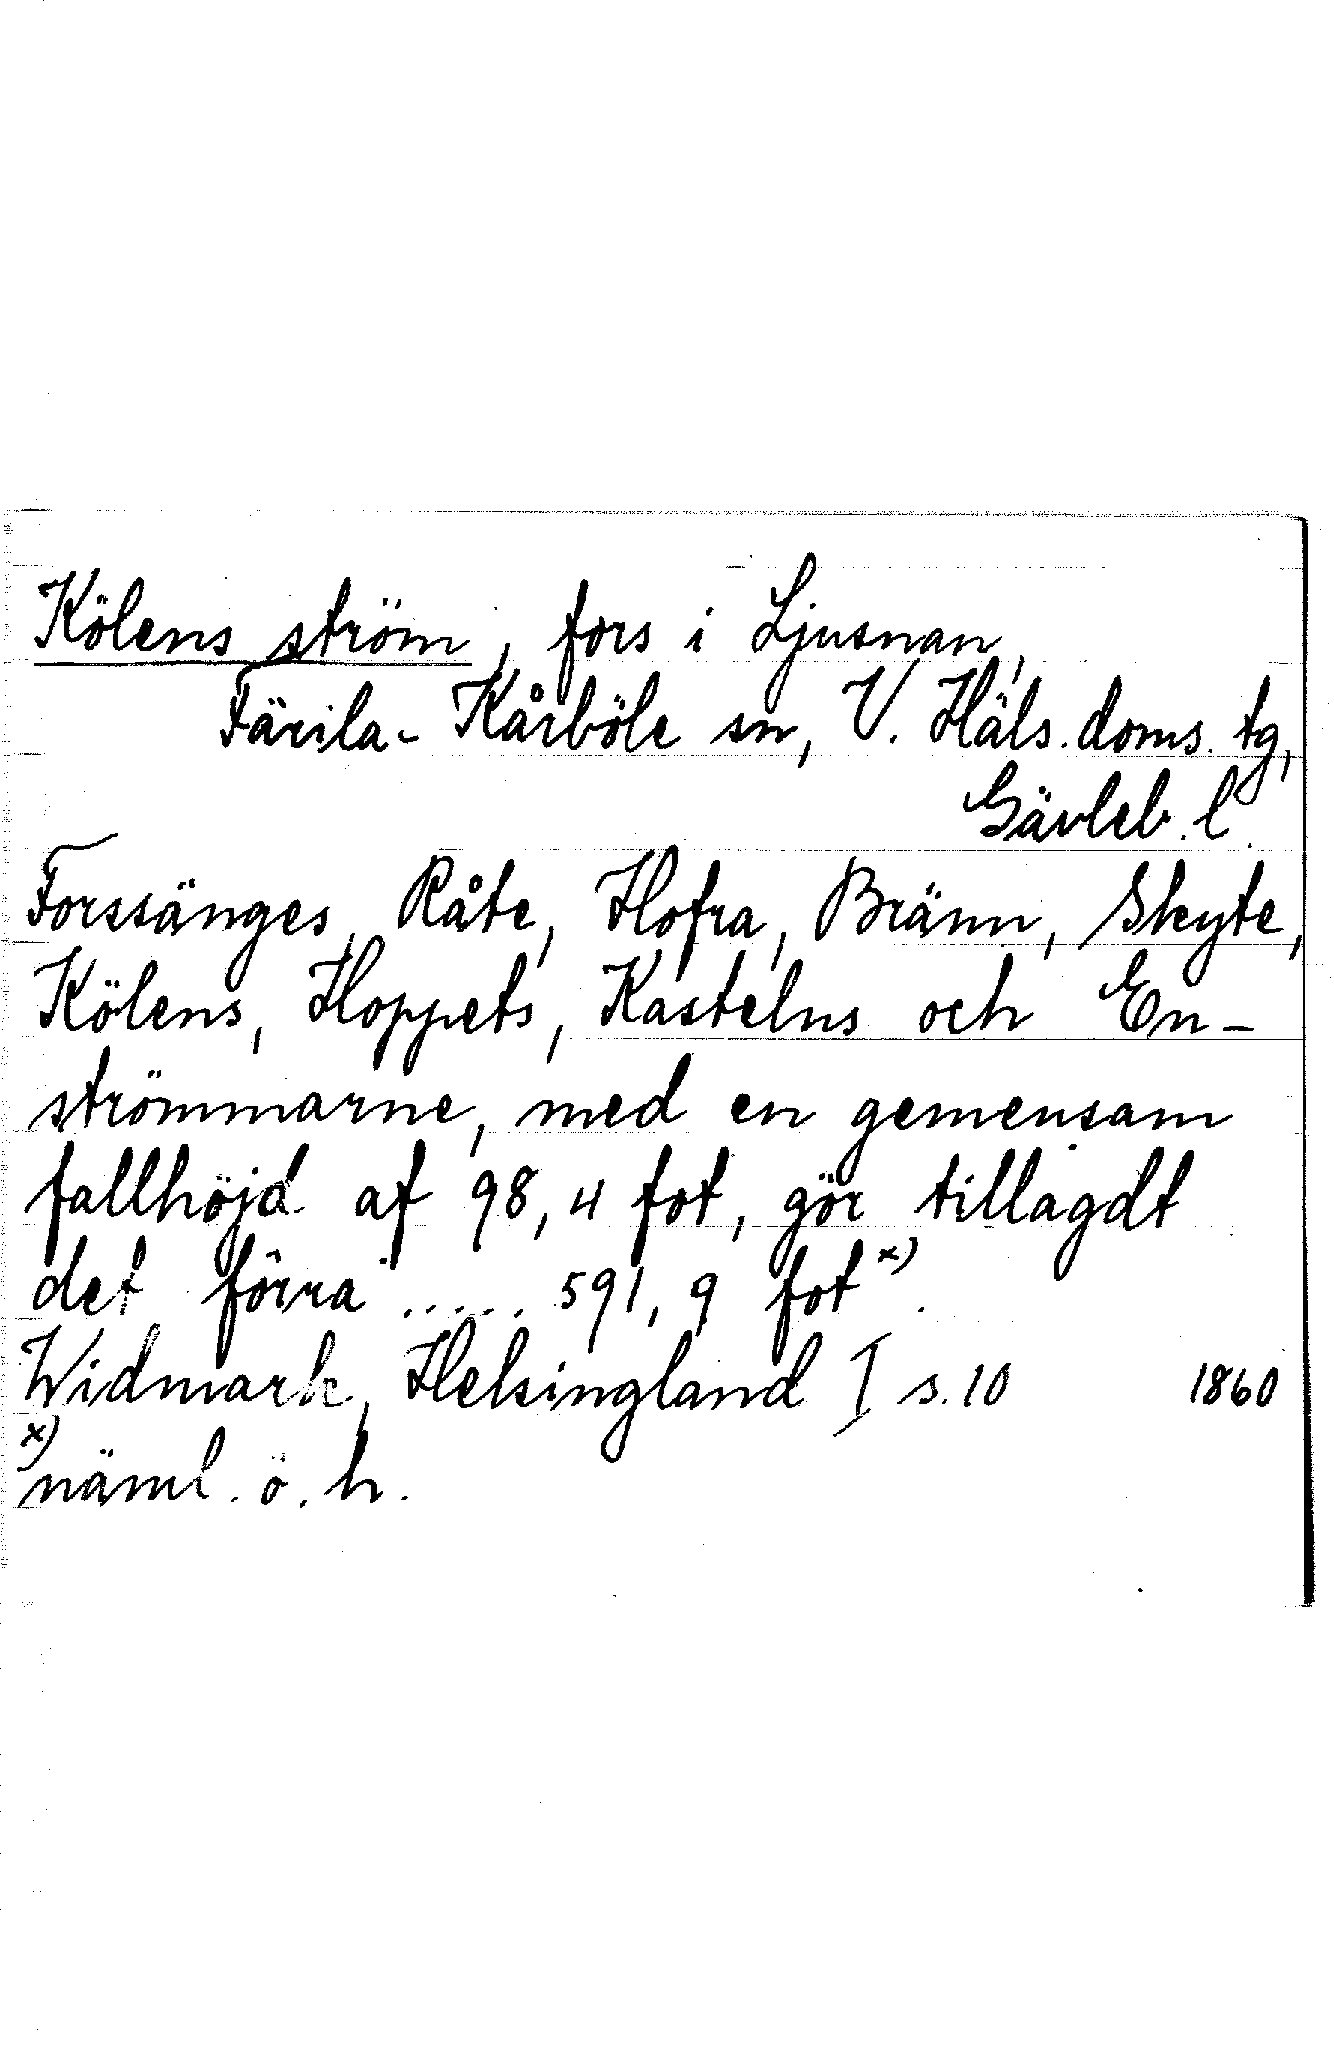 Kölens ström, fors i Ljusnan,
Färila-Kårböle sn, V. Häls. doms. tg,
Gävleb. l.
Forssänges, Råte, Hofra, Bränn, Skyte,
Kölens, Hoppets, Kastelns och En-
strömmarne, med en gemensam
fallhöjd af 98,4 fot, gör tillagdt
det förra ..... 591,9 fot x).
Widmark, Helsingland I s.10 1860
x) näml. ö. h.